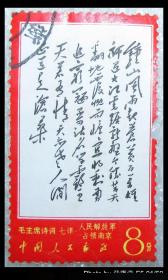 鐘山風雨起蒼黄百万雄
師过大江虎踞龙盘今勝昔天
翻地覆慨而慷宜将剩勇
追窮寇不可沽名学霸王
天若有情天亦老人间
正道是滄桑
毛主席诗词 七律 人民解放军
占领南京
中国人民邮政 8分